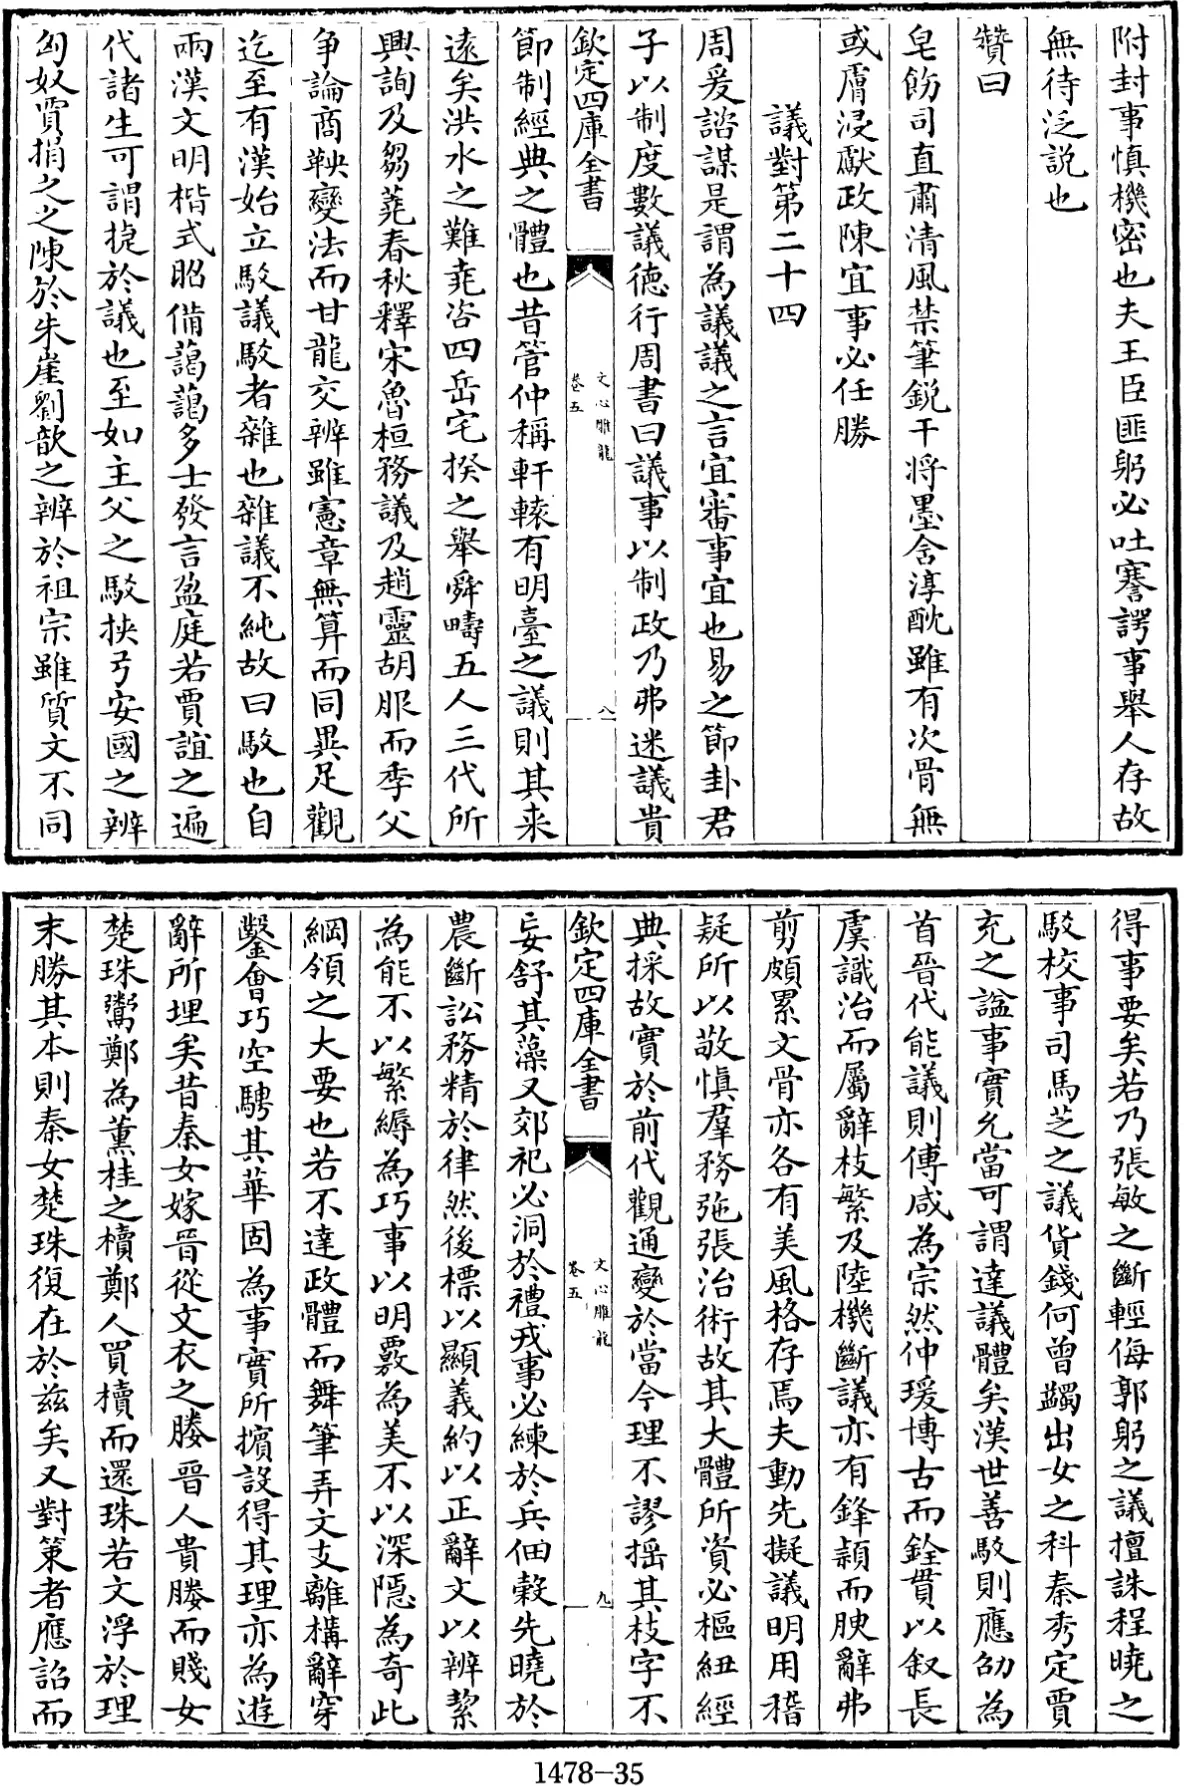 附封事慎機密也夫王臣匪躬必吐謇諤事舉人存故
無待泛説也
贊曰
皂飭司直肅清風禁筆鋭干將墨含淳酖雖有次骨無
或膚浸獻政陳宜事必任勝
議對第二十四
周爰諮謀是謂為議議之言宜審事宜也易之節卦君
子以制度數議徳行周書曰議事以制政乃弗迷議貴
欽定四庫全書
文心雕龍
卷五
八
節制經典之體也昔管仲稱軒轅有明臺之議則其來
逺矣洪水之難堯咨四岳宅揆之舉舜疇五人三代所
興詢及芻蕘春秋釋宋魯桓務議及趙靈胡服而季父
争論商鞅變法而甘龍交辨雖憲章無算而同異足觀
迄至有漢始立駁議駁者雜也雜議不純故曰駁也自
兩漢文明楷式昭備藹藹多士發言盈庭若賈誼之遍
代諸生可謂捷於議也至如主父之駁挾弓安國之辨
匈奴賈捐之之陳於朱崖劉歆之辨於祖宗雖質文不同
得事要矣若乃張敏之斷輕侮郭躬之議擅誅程曉之
駁校事司馬芝之議貨錢何曾蠲出女之科秦秀定賈
充之諡事實允當可謂達議體矣漢世善駁則應劭為
首晉代能議則傅咸為宗然仲瑗博古而銓貫以叙長
虞識治而屬辭枝繁及陸機斷議亦有鋒穎而腴辭弗
剪頗累文骨亦各有美風格存焉夫動先擬議明用稽
疑所以敬慎羣務弛張治術故其大體所資必樞紐經
典採故實於前代觀通變於當今理不謬揺其枝字不
欽定四庫全書
文心雕龍
卷五
九
妄舒其藻又郊祀必洞於禮戎事必練於兵佃榖先曉於
農斷訟務精於律然後標以顯義約以正辭文以辨絜
為能不以繁縟為巧事以明覈為美不以深隱為奇此
綱領之大要也若不達政體而舞筆弄文支離構辭穿
鑿會巧空騁其華固為事實所擯設得其理亦為遊
辭所埋矣昔秦女嫁晉從文衣之媵晉人貴媵而賤女
楚珠鬻鄭為薰桂之櫝鄭人買櫝而還珠若文浮於理
末勝其本則秦女楚珠復在於兹矣又對策者應詔而
1478-35